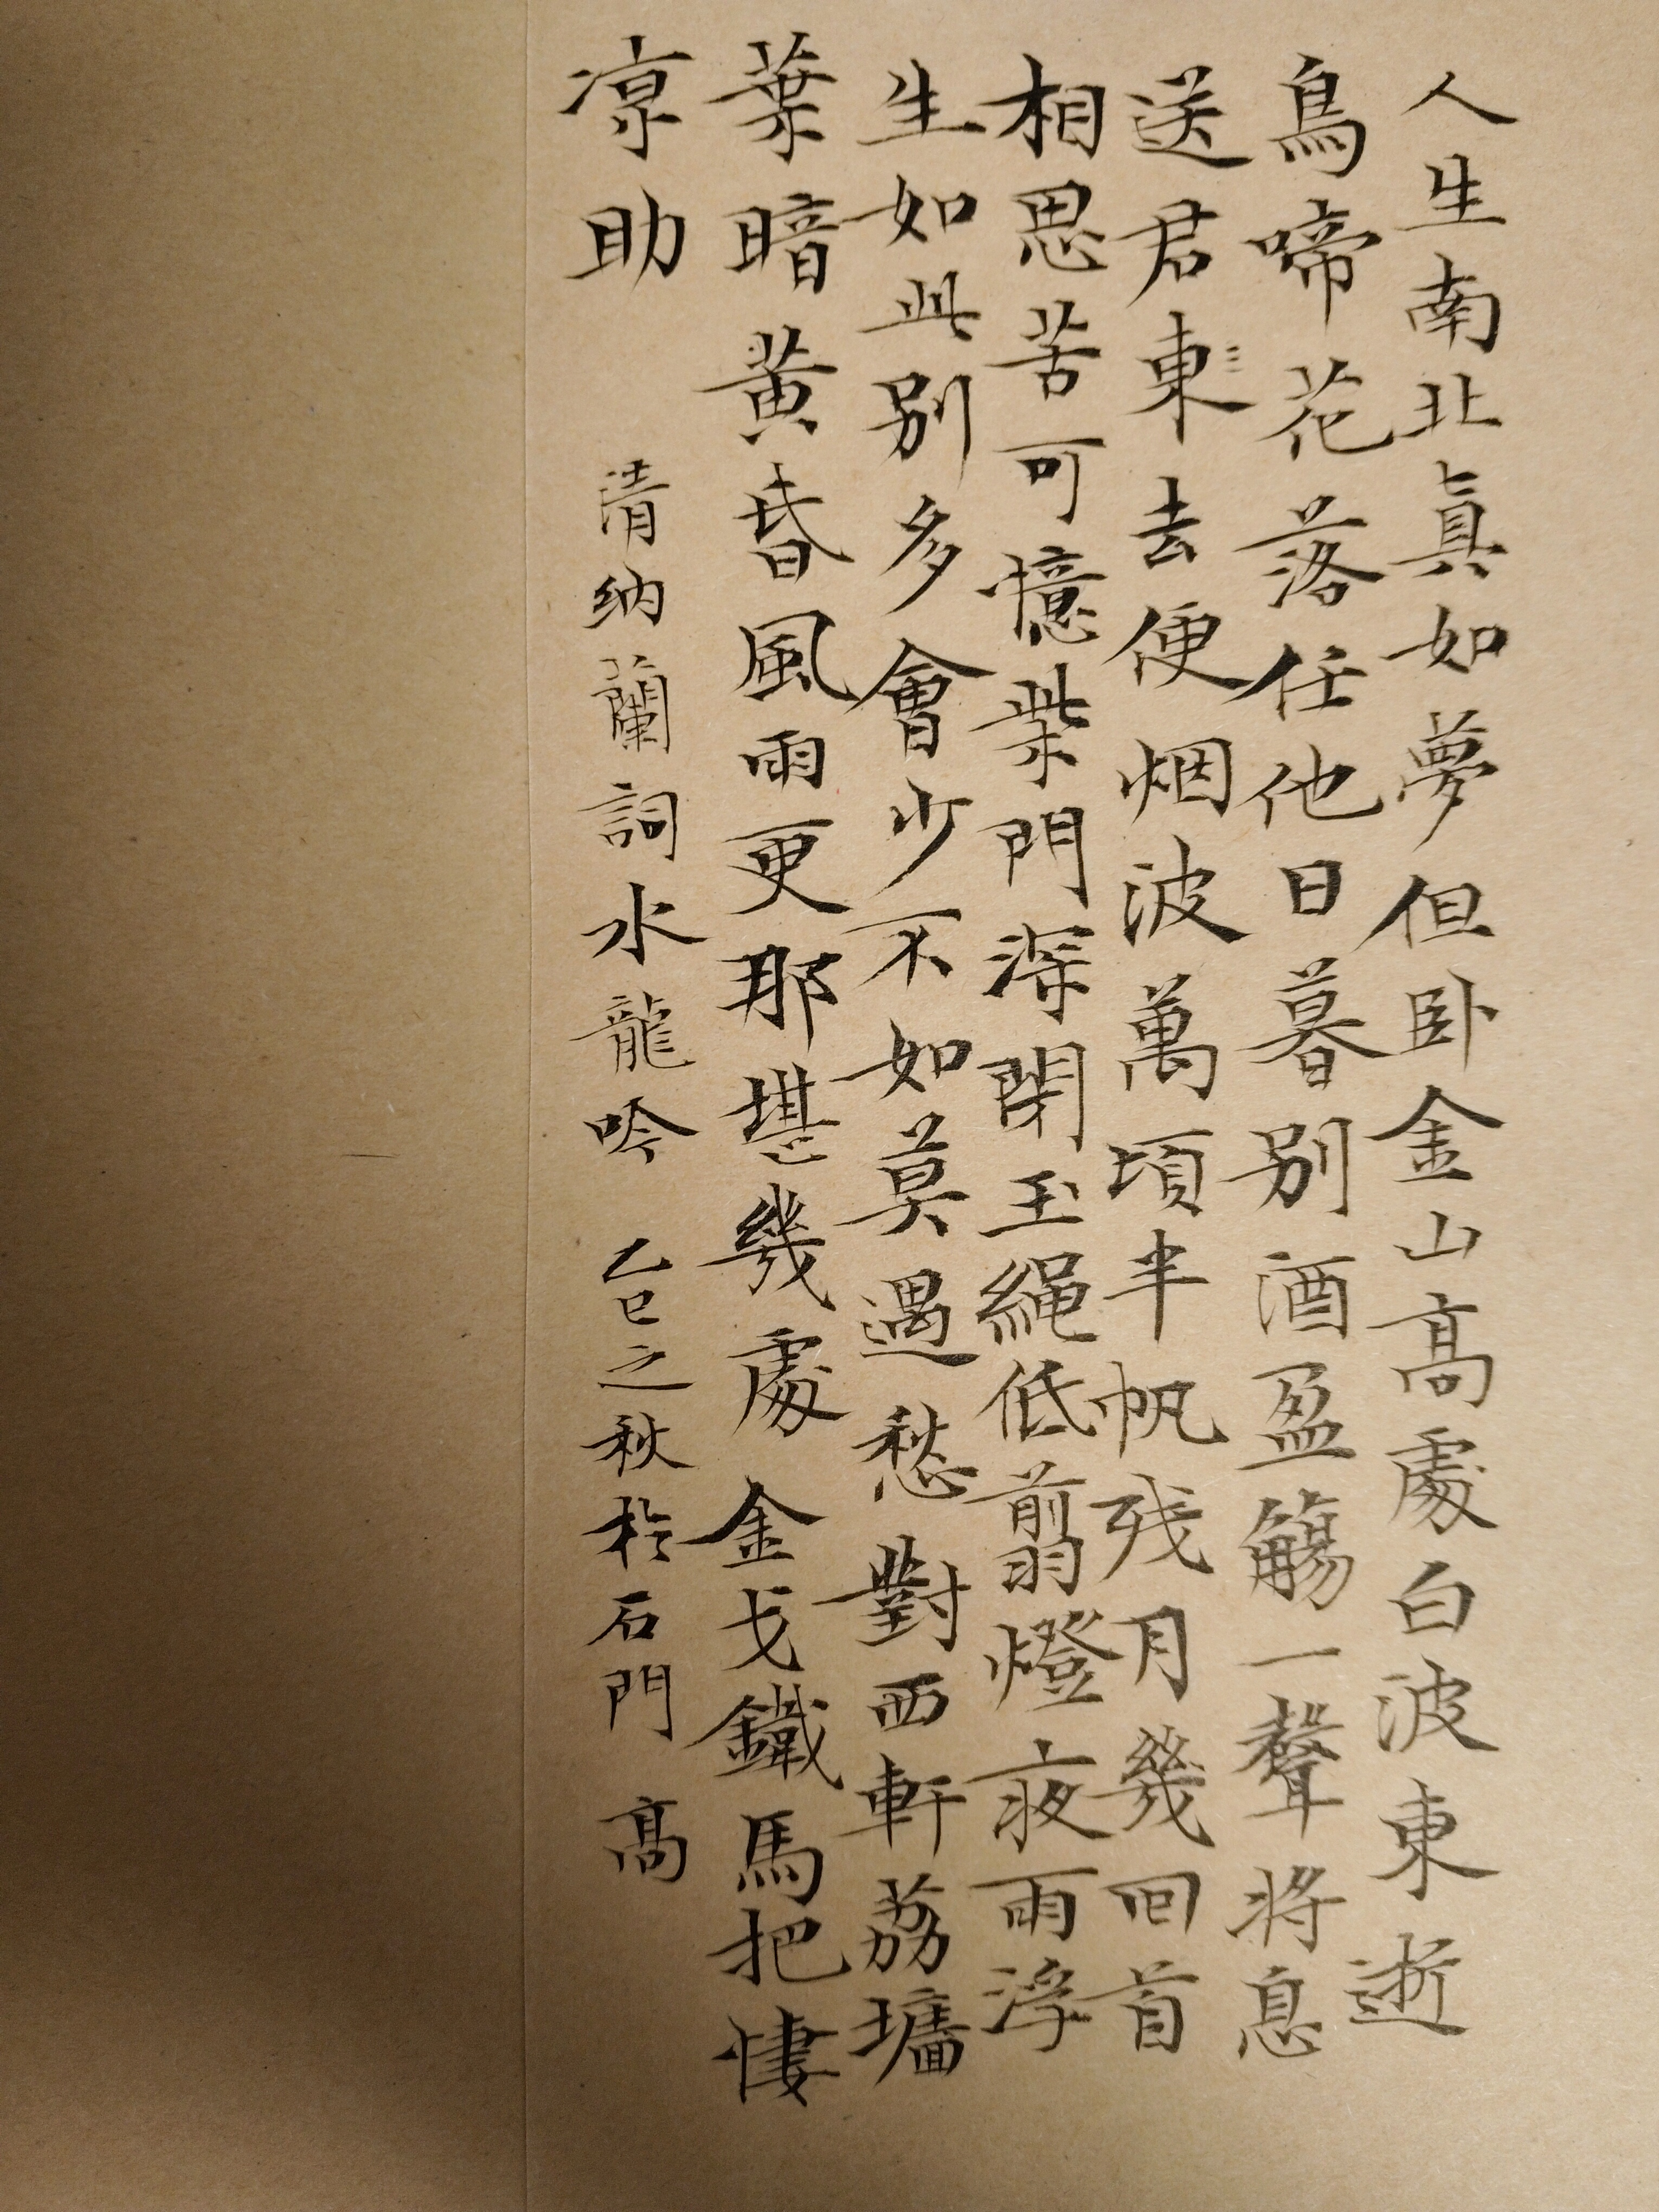 人生南北真如夢但卧金山高處白波東逝
鳥啼花落任他日暮別酒盈觴一聲將息
送君東去便烟波萬頃半帆残月幾回首
相思苦可憶柴門深閉玉繩低翦燈夜雨浮
生如此別多會少不如莫遇愁對西軒荔墻
葉暗黃昏風雨更那堪幾處金戈鐵馬把悽
凉助
清纳蘭詞水龍吟 乙巳之秋於石門 高